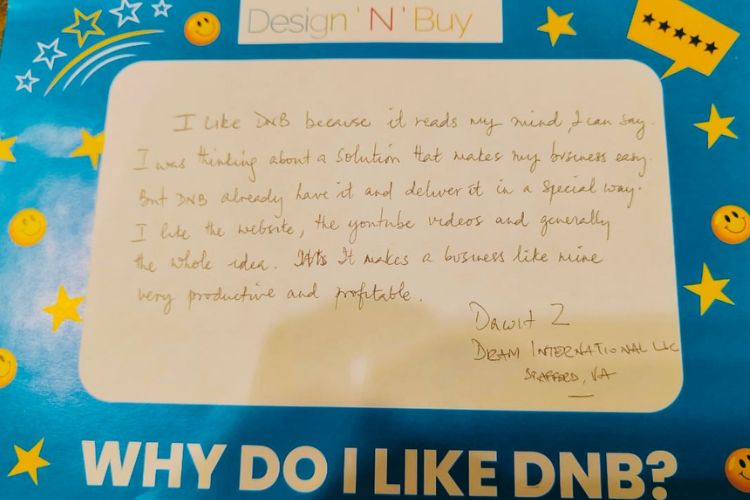 Design 'N' Buy
I like DNB because it reads my mind, I can say.
I was thinking about a solution that makes my business easy.
But DNB already have it and deliver it in a special way.
I like the website, the youtube videos and generally
the whole idea. It makes a business like mine
very productive and profitable.
Dawit Z
DRAM INTERNATIONAL LLC
STAFFORD, VA
WHY DO I LIKE DNB?